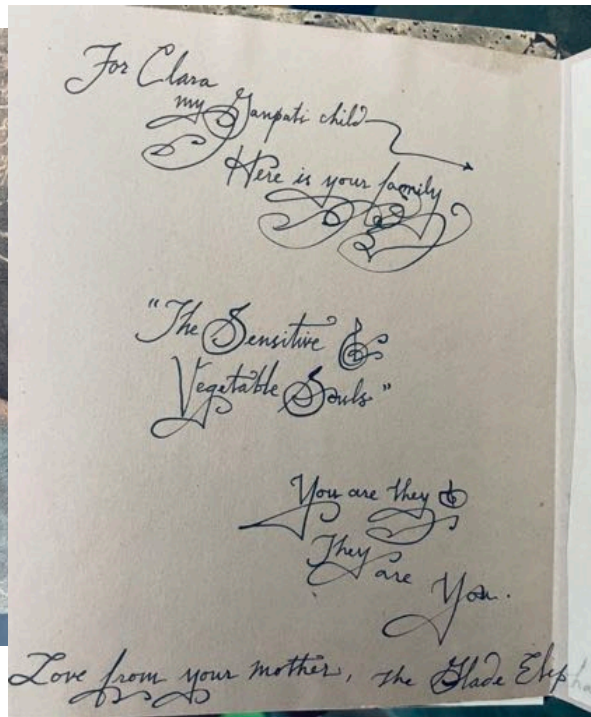 For Clara
my Ganpati child
Here is your family
"The Sensitive &
Vegetable Souls"
You are they &
They
are
You.
Love from your mother, the Glade Elepha